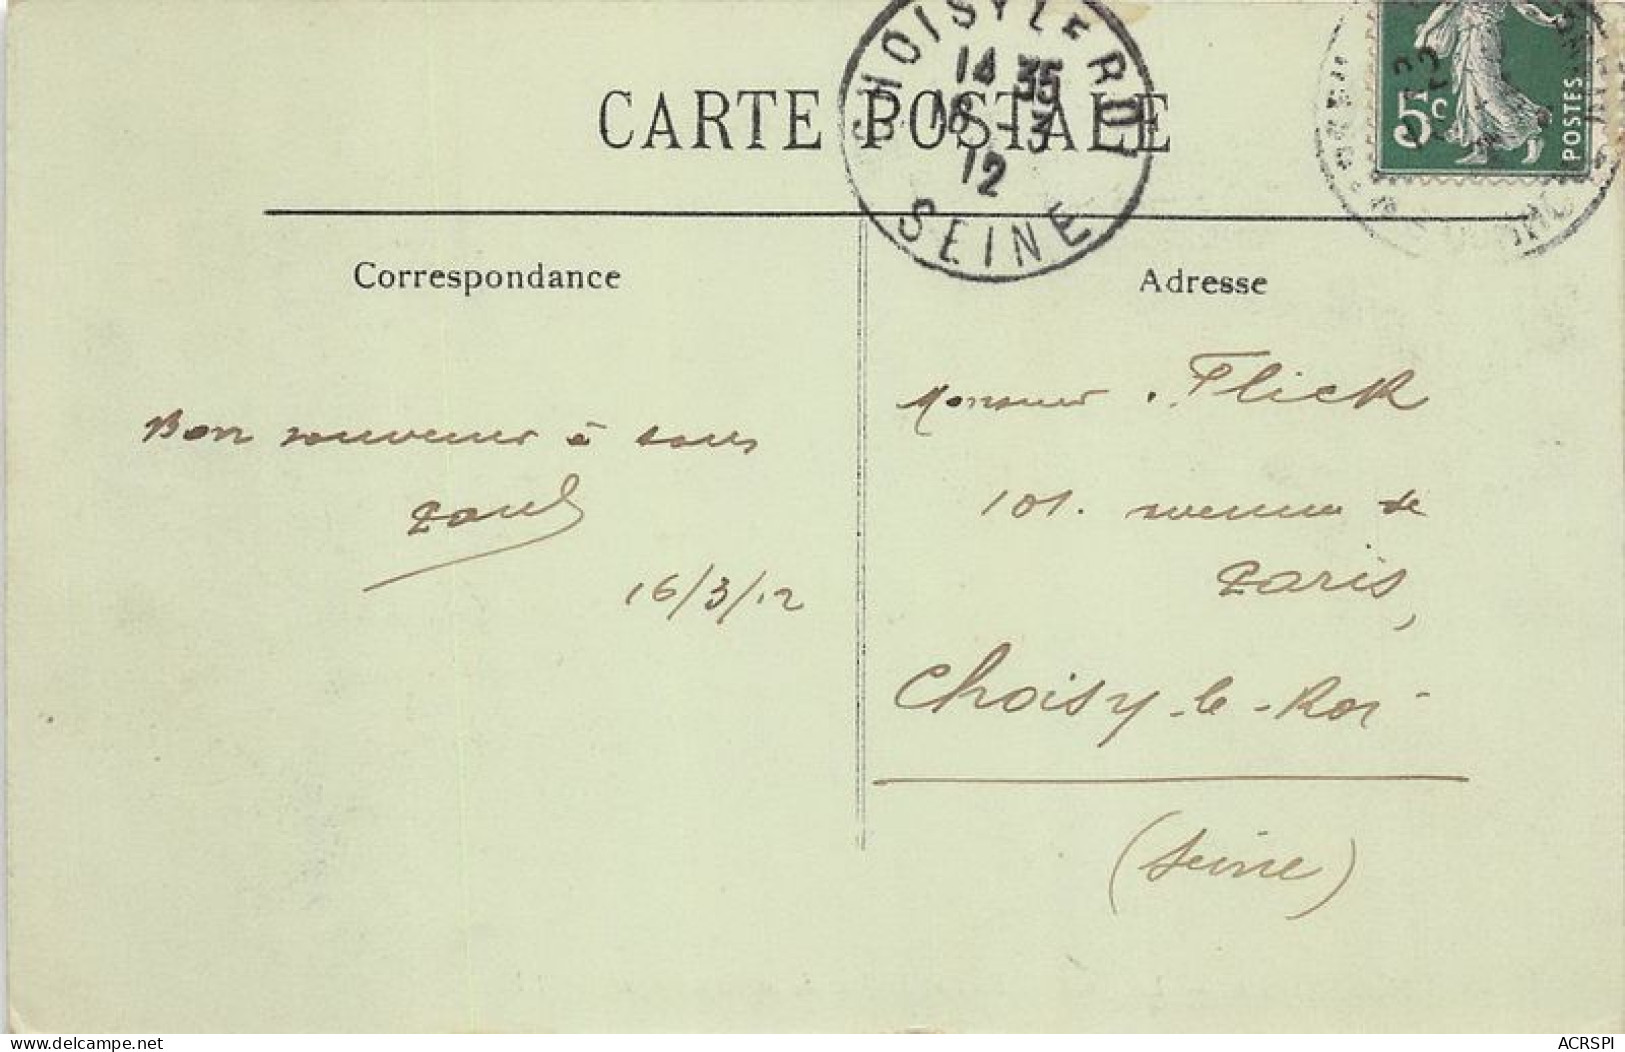 CARTE POSTALE
CHOISY LE ROI
14 35
16 - 3
12
SEINE
5c
POSTES
Correspondance
Adresse
Bon souvenir à tous
Paul
16/3/12
Monsieur Flick
101. avenue de
Paris,
Choisy-le-Roi
(Seine)
www.delcampe.net
ACRSPI